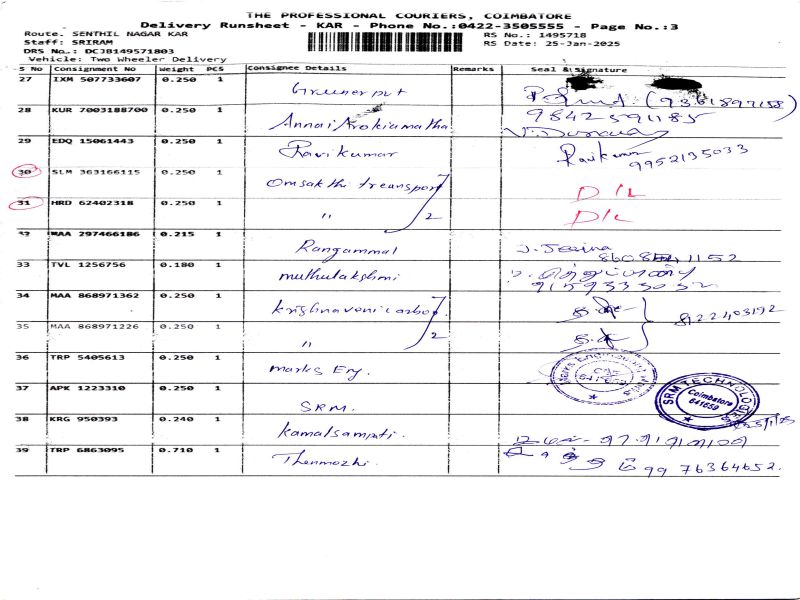 THE PROFESSIONAL COURIERS, COIMBATORE
Delivery Runsheet - KAR - Phone No.:0422-3505555 - Page No.:3
Route. SENTHIL NAGAR KAR RS No.: 1495718
Staff: SRIRAM RS Date: 25-Jan-2025
DRS No.: DCJ8149571803
Vehicle: Two Wheeler Delivery
S No Consignment No Weight PCS Consignee Details Remarks Seal & Signature
27 IXM 507733607 0.250 1
28 KUR 7003188700 0.250 1 Annai Arokiamatha 9842591185
29 EDQ 15061443 0.250 1 Ravikumar Ravikumar 9952135033
30 SLM 363166115 0.250 1 Omsakthi treansport D/L
31 HRD 62402318 0.250 1 " 2 D/L
32 MAA 297466186 0.215 1 Rangammal
33 TVL 1256756 0.180 1 muthulakshmi
34 MAA 868971362 0.250 1 Krishnaveni carbon
35 MAA 868971226 0.250 1 " 2
36 TRP 5405613 0.250 1 marks Eng. 641659
37 APK 1223310 0.250 1 SRM. SRM TECHNOLOGIES Coimbatore 641659
38 KRG 950393 0.240 1 Kamalsampati.
39 TRP 6863095 0.710 1 Thenmozhi. 9976364652.